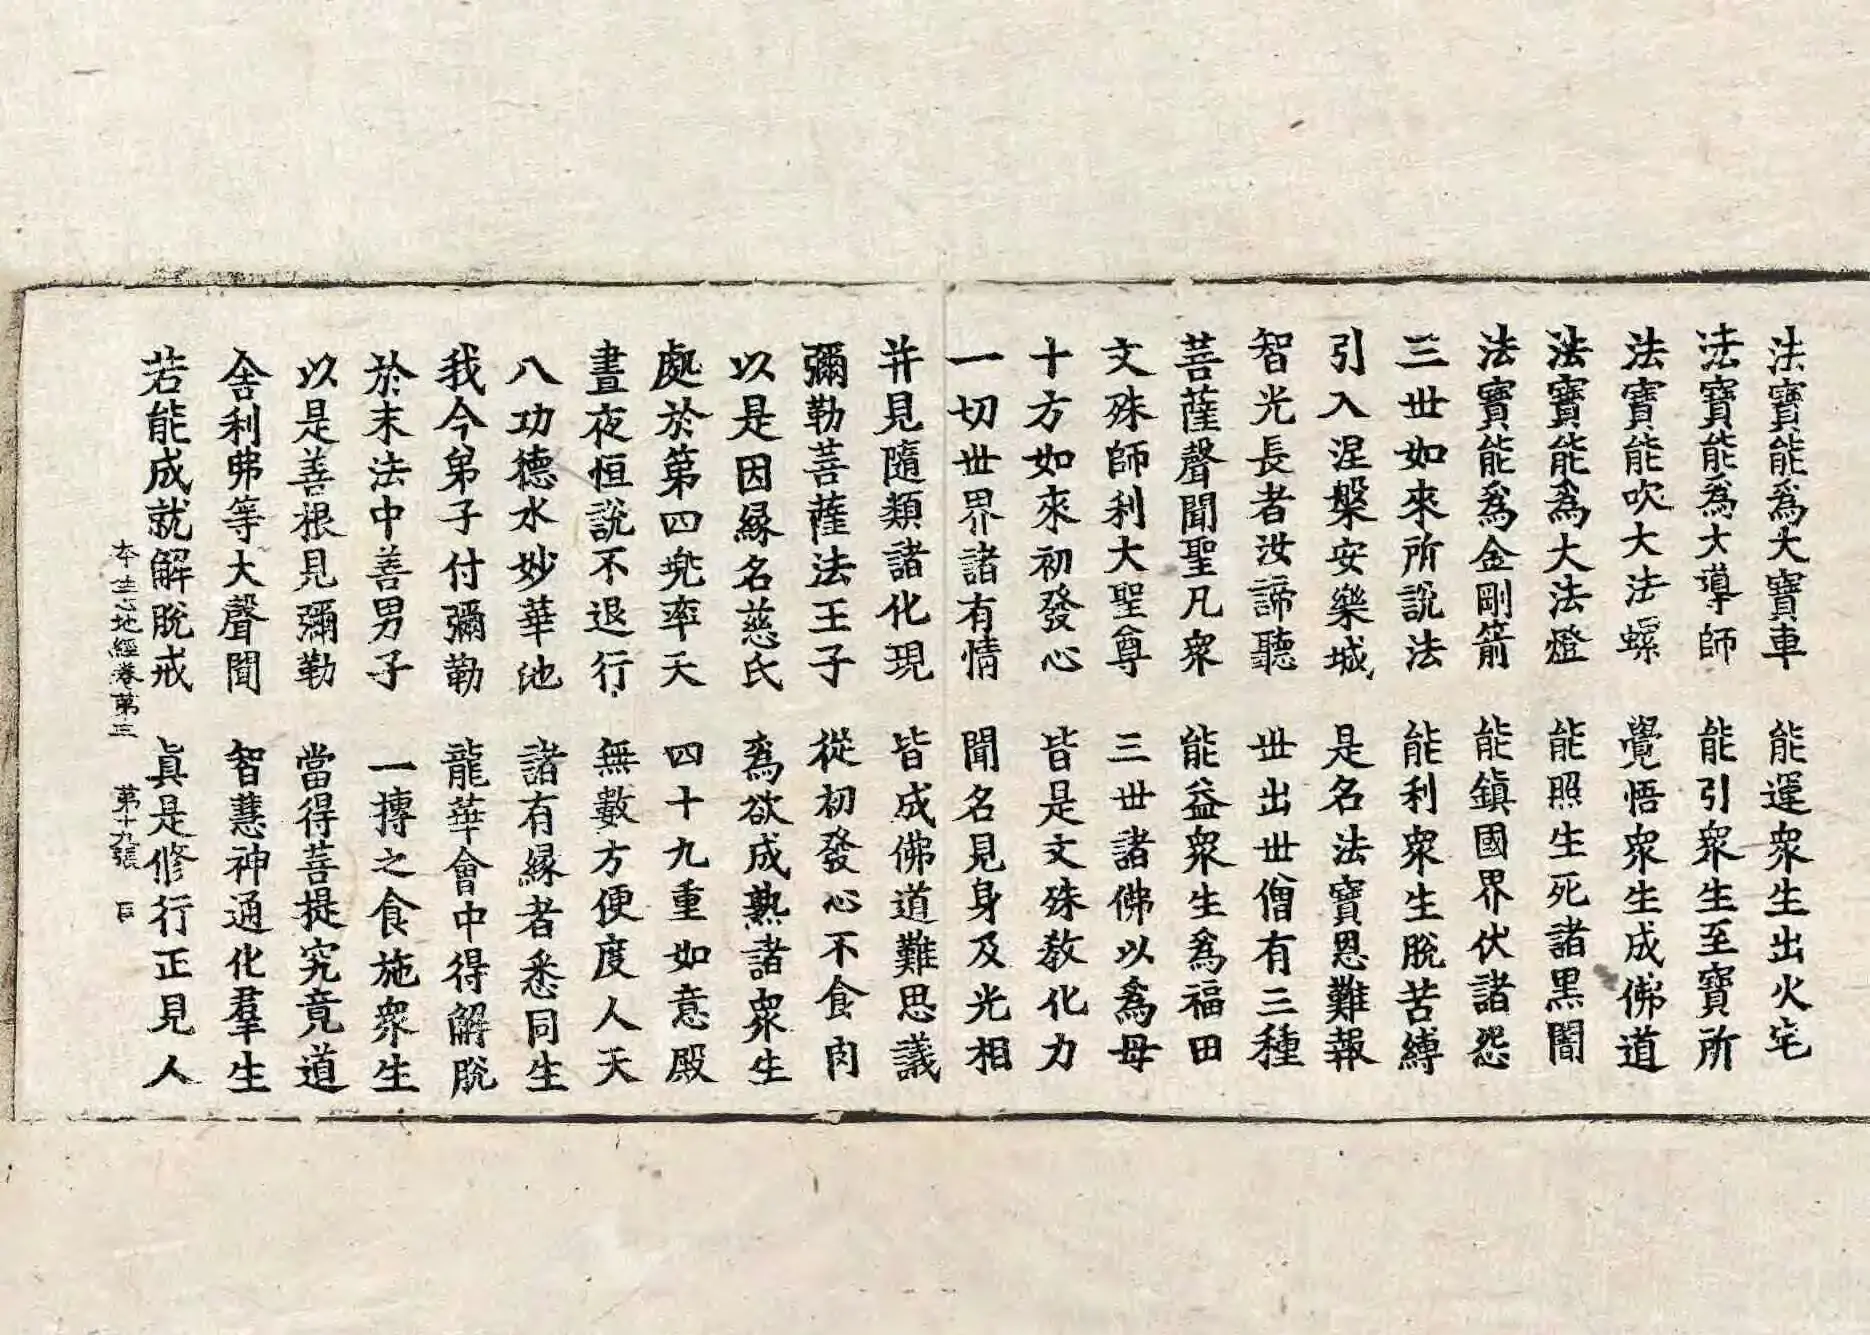 法寶能為大寶車　能運衆生出火宅
法寶能為大導師　能引衆生至寶所
法寶能吹大法螺　覺悟衆生成佛道
法寶能為大法燈　能照生死諸黑闇
法寶能為金剛箭　能鎮國界伏諸怨
三世如來所說法　能利衆生脫苦縛
引入涅槃安樂城　是名法寶恩難報
智光長者汝諦聽　世出世僧有三種
菩薩聲聞聖凡衆　能益衆生為福田
文殊師利大聖尊　三世諸佛以為母
十方如來初發心　皆是文殊教化力
一切世界諸有情　聞名見身及光相
并見隨類諸化現　皆成佛道難思議
彌勒菩薩法王子　從初發心不食肉
以是因縁名慈氏　為欲成熟諸衆生
處於第四兜率天　四十九重如意殿
晝夜恒說不退行　無數方便度人天
八功德水妙華池　諸有縁者悉同生
我今弟子付彌勒　龍華會中得解脫
於末法中善男子　一摶之食施衆生
以是善根見彌勒　當得菩提究竟道
舍利弗等大聲聞　智慧神通化羣生
若能成就解脫戒　真是修行正見人
本生心地經卷第三　第十九張